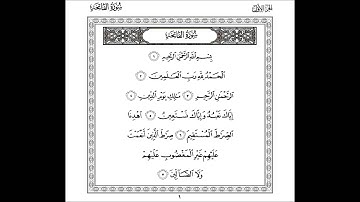 سورة الفاتحة الجزء الأول
سورة الفاتحة
بسم الله الرحمن الرحيم ١
الحمد لله رب العلمين ٢
الرحمن الرحيم ٣ ملك يوم الدين ٤
إياك نعبد وإياك نستعين ٥ اهدنا
الصرط المستقيم ٦ صرط الذين أنعمت
عليهم غير المغضوب عليهم
ولا الضالين ٧
١